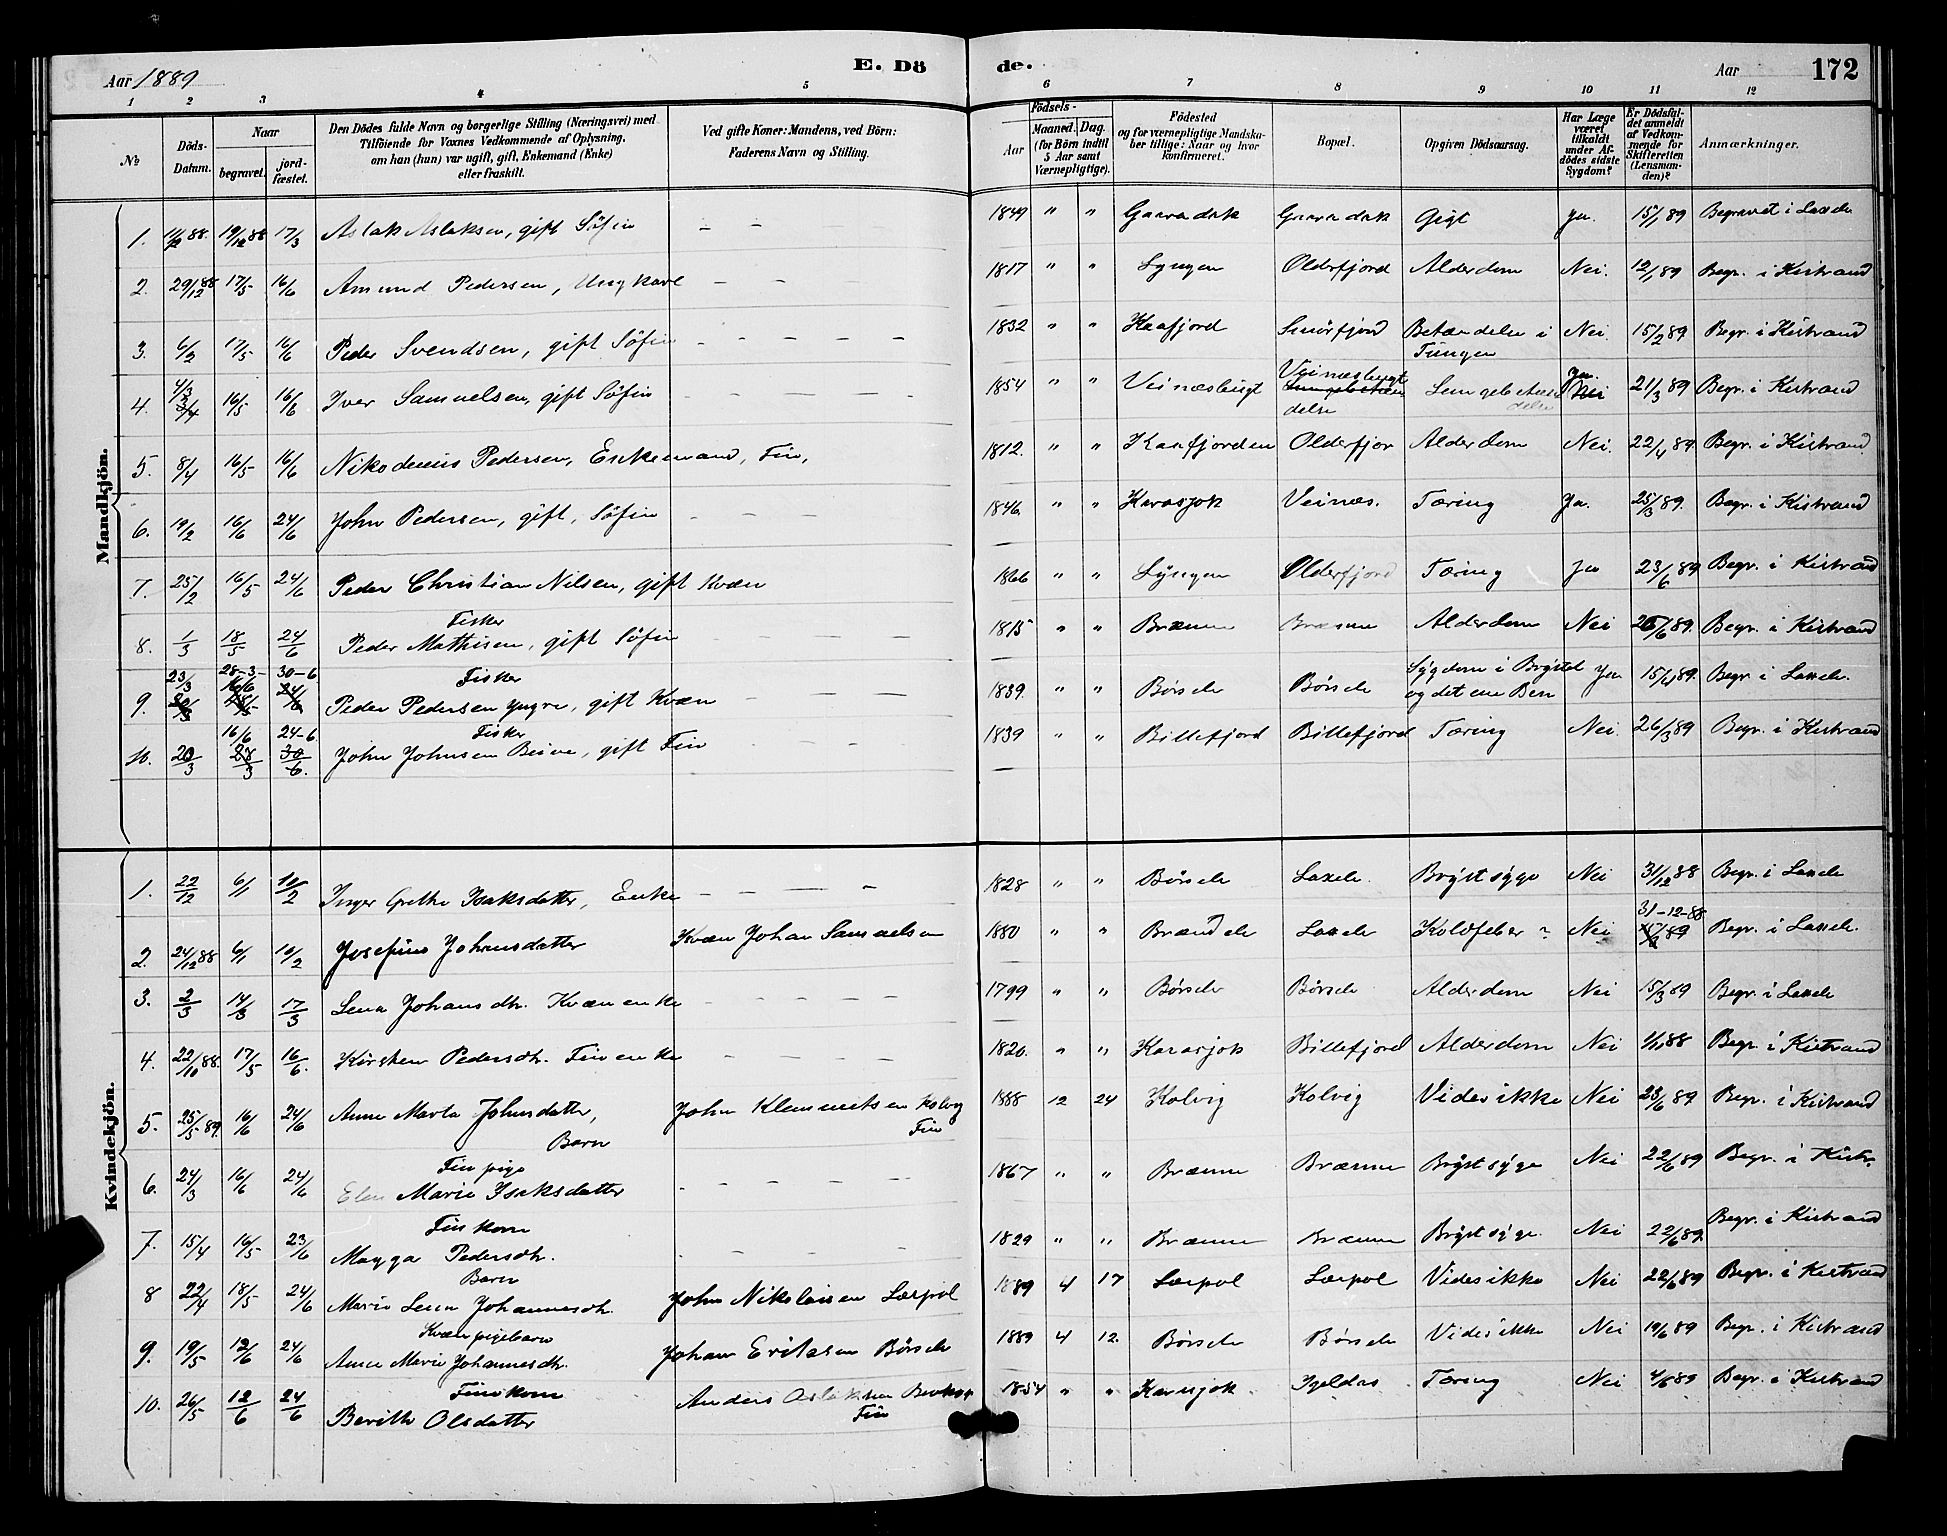 Aar 1889 E. Dö de. Aar 172
1 2 3 4 5 6 7 8 9 10 11 12
№
Döds-Datum.
Naar
begravet. jord-fæstet.
Den Dödes fulde Navn og borgerlige Stilling (Næringsvei) med
Tilföiende for Voxnes Vedkommende af Oplysning,
om han (hun) var ugift, gift, Enkemand (Enke)
eller fraskilt.
Ved gifte Koner: Mandens, ved Börn:
Faderens Navn og Stilling.
Födsels-
Aar Maaned. Dag.
(for Börn indtil
5 Aar samt
Værnepligtige).
Födested
og for værnepligtige Mandska-
ber tillige: Naar og hvor
konfirmeret.
Bopæl.
Opgiven Dödsaarsag.
Har Læge
været
tilkaldt
under Af-
dödes sidste
Sygdom?
Er Dödsfal-
det anmeldt
af Vedkom-
mende for
Skifteretten
(Lensman-
den)?
Anmærkninger.
Mandkjön.
1. 19/12 88 17/3 Aslak Aslaksen, gift Söfin – – 1849 " " Gaaradak Gaaradak Gigt Ja. 15/1 89 Begravet i Laxelv
2. 29/12 88 17/5 16/6 Amund Pedersen, Ungkarl – – 1817 " " Lyngen Olderfjord Alderdom Nei. 12/1 89 Begr. i Kistrand
3. 6/2 17/5 16/6 Peder Svendsen, gift Söfin – – – – – 1832 " " Kaafjord Smörfjord Betændelse i Nei. 15/2 89 Begr. i Kistrand
Tungen
4. 4/3 16/5 16/6 Iver Samuelsen, gift Söfin – – – – 1854 " " Veinæsbugt Veinæsbugt Lungebetæn Ja. 21/3 89 Begr. i Kistrand
delse delse
5. 8/4 16/5 16/6 Nikodemus Pedersen, Enkemand, Fin, 1812. " " Kaafjorden Olderfjor Alderdom Nei. 22/4 89 Begr. i Kistrand
6. 19/2 16/6 24/6 John Pedersen, gift, Söfin – – – 1846. " " Karasjok Veinæs. Tæring Ja. 25/3 89. Begr. i Kistrand
7. 25/2 16/5 24/6 Peder Christian Nilsen, gift Kvæn 1866 " " Lyngen Olderfjord Tæring Ja 23/6 89 Begr. i Kistrand
Fisker
8. 1/3 18/5 24/6 Peder Mathisen, gift Söfin 1815 " " Brænne Brænne Alderdom Nei 26/6 89. Begr. i Kistrand
23/3 28-3- 30-6 Fisker Sygdom i Brystet
9. 16/6 24/6 Peder Pedersen yngre, gift Kvæn – – – 1839. " " Börselv Börselv og det ene Ben Ja 15/4 89. Begr. i Laxelv.
16/6 24-6 Fisker
10. 20/3 28/3 30/6 John Johnsen Beive, gift Fin – – – 1839 " " Billefjord Billefjord Tæring Nei. 26/3 89 Begr. i Kistrand
Kvindekjön.
1. 22/12 6/1 10/2 Inger Grethe Isaksdatter, Enke – – – " 1828 " " Börselv Laxelv. Brystsyge Nei 31/12 88 Begr. i Laxelv
31-12-88
2. 24/12 88 6/1 10/2 Josefine Johansdatter Kvæn Johan Samuelsen 1880 " " Brændelv Laxelv Koldfeber ? Nei Begr. i Laxelv.
3. 2/3 14/3 17/3 Lena Johansdtr. Kvænenke – – – – – 1799 " " Börselv Börselv Alderdom Nei 15/3 89 Begr. i Laxelv
4. 22/10 88. 17/5 16/6. Kirsten Pedersdtr. Finenke – – – – – 1820. " " Karasjok Billefjord Alderdom Nei 1/11 88 Begr. i Kistrand
5. 25/5 89. 16/6 24/6 Anne Marta Johnsdatter, John Klemmetsen Kolvig 1888 12 24 Kolvig Kolvig Vides ikke Nei 23/6 89. Begr. i Kistrand
Barn Fin
Finpige
6. 24/3 16/6 24/6 Elen Marie Isaksdatter – – – – – 1867 " " Brænne Brænne Brystsyge Nei 22/6 89 Begr. i Kistr.
Finkone
7. 15/4 16/5 23/6 Magga Pedersdtr. – – – – – 1829 " " Brænne Brænne Brystsyge. Nei 22/6 89. Begr. i Kistrand
Barn
8 22/4 18/5 24/6 Marie Lena Johannesdtr. John Nikolaisen Læspol 1889 4 17 Læspol Læspol Vides ikke Nei 22/6 89 Begr. i Kistrand
Kvænpigebarn
9. 19/5 12/6 24/6 Anne Marie Johannesdtr. Johan Eriksen Börselv 1889 4 12. Börselv Börselv Vides ikke Nei 19/6 89 Begr. i Kistrand
Finnkone
10. 26/5 12/6 24/6 Berith Olsdatter Anders Oslaksen 1854 " " Karasjok. Igeldas Tæring Nei 4/6 89 Begr. i Kistrand
Fin